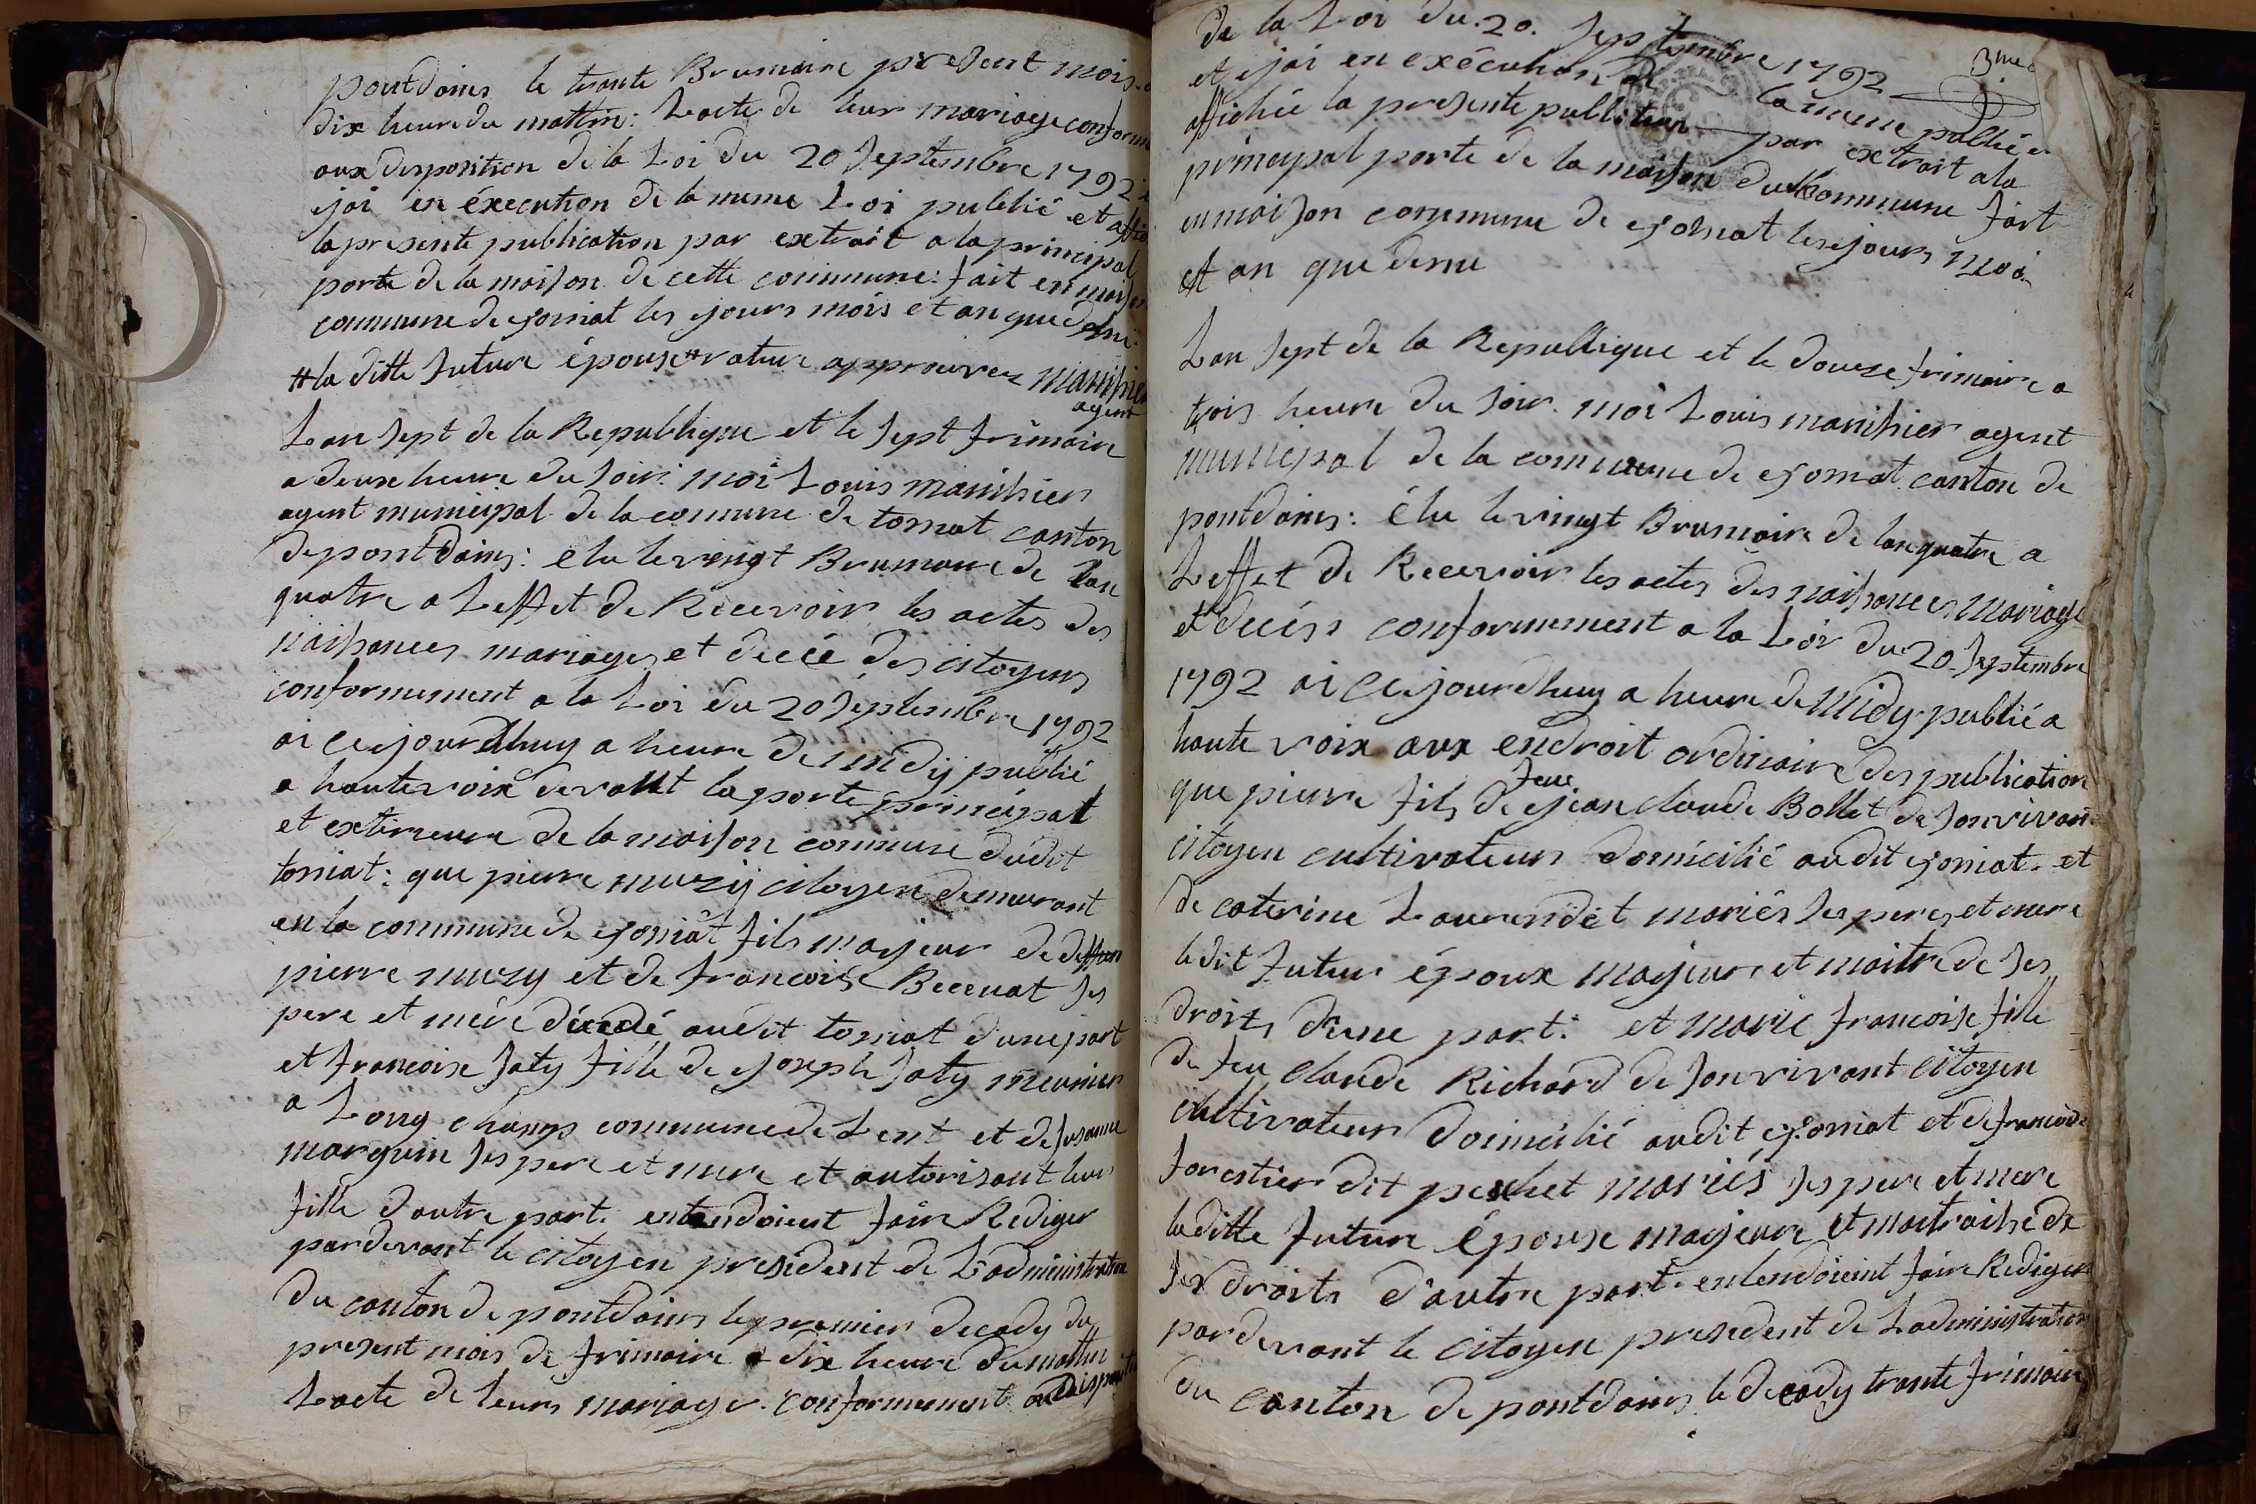 pontdains le trante Brumaire present mois
dix heure du mattin: Lacte de leur mariage conform
aux disposition de la Loi du 20 Septembre 1792
ejai en éxecution de la meme Loi publié et affi
la presente publication par extrait a la principal
porte de la maison de cette commune: fait en maison
commune de ejorniat les ejours mois et an que desu
# la ditte future épouse # rature approuvez manihier
agent
Lan Sept de la Republique et le Sept frimaire
a deux heure du Soir: moi Louis manihier
agent municipal de la comune de torniat canton
de pontdains: elu le vingt Brumaire de Lan
quatre a Leffet de Recevoir les actes des
naissances mariages et decé des citoyens
conformement a la Loi du 20 Septembre 1792
ai cejourdhuy a heure de midy publié
a haute voix devant la porte principal
et exterieure de la maison commune dudit
torniat: que pierre muzy citoyen demeurant
en la commune de ejorniat fils majeur de deffun
pierre muzy et de francoise Beccuat Ses
pere et mére décedé audit torniat dune part
et francoise Saty fille de ejoseph Saty meunier
a Long champs commune de Lent et de Susanne
marguin Ses pere et mere et autorisant leur
fille dautre part. entendoient faire Rediger
pardevant le citoyen president de Ladministration
du canton de pontdains le premier decady du
present mois de frimaire a dix heure du mattin
Lacte de leurs mariage. conformement au disposition
de la Loi du 20. Septembre 1792 3me
et ejai en exécution de la meme publié et
affichée la presente publication par extrait a la
principal porte de la maison du Commune fait
en maison commune de ejorniat les ejours moi
et an que desu
Lan Sept de la Republique et le douze frimaire a
trois heure du Soir. moi Louis manihier agent
municipal de la commune de ejorniat canton de
pontdains: élu le vingt Brumaire de lan quatre a
Leffet de Recevoir les actes des naissances mariage
et decés conformement a la Loi du 20 Septembre
1792 ai cejourdhuy a heure de Midy publié a
haute voix aux endroit ordinaire des publication
que pierre fils de feue ejean claude Bollet de Son vivant
citoyen cultivateur domicilié audit ejorniat et
de caterine Laurendet mariés Ses peres et mere
ledit futur époux majeure et maitre de Ses
droits dune part: et marie francoise fille
de feu claude Richard de Son vivant citoyen
cultivateur domicilié audit ejorniat et de francoise
forestier dit pechet mariés Ses pere et mere
laditte future épouse majeure et maitraisse de
Ses droits d'autre part: entendoient faire Rediger
pardevant le citoyen president de Ladministration
du canton de pontdains le decady trante frimaire